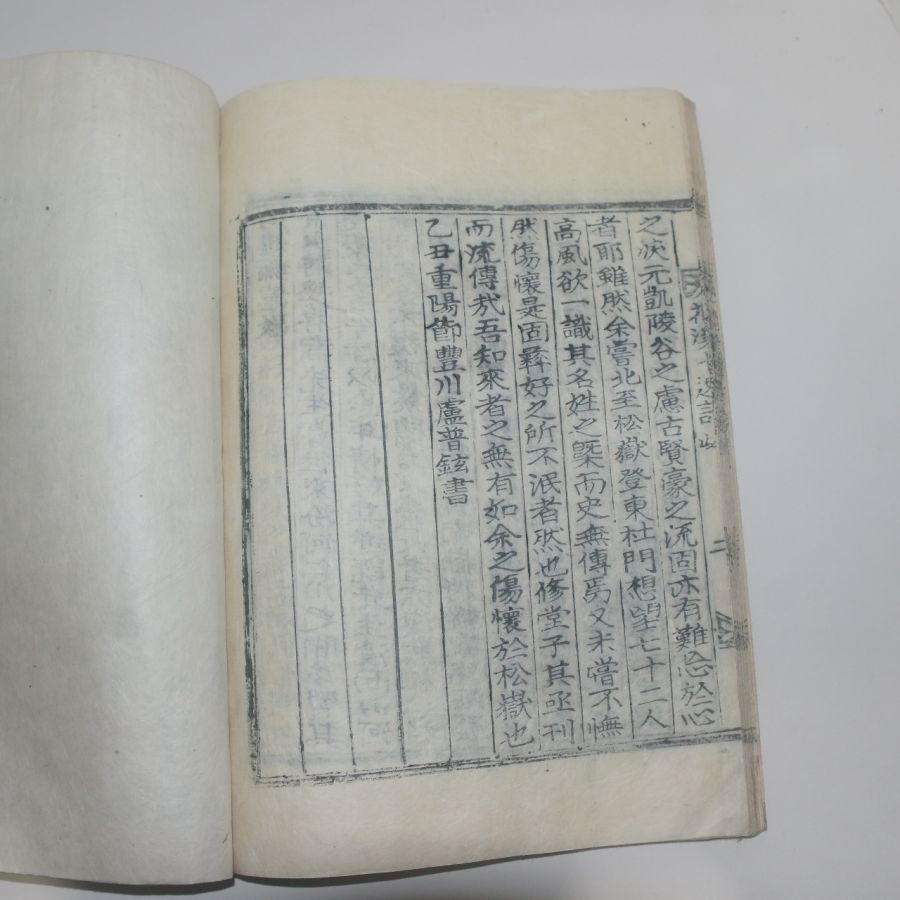 之淚元凱陵谷之慮古賢豪之流固亦有難忘於心
者耶雖然余嘗北至松嶽登東杜門想望七十二人
高風欲一識其名姓之槩而史無傳焉又未嘗不憮
然傷懷是固彛好之所不泯者然也修堂子其亟刊
而流傳㢤吾知來者之無有如余之傷懷於松嶽也
乙丑重陽節豐川盧普鉉書